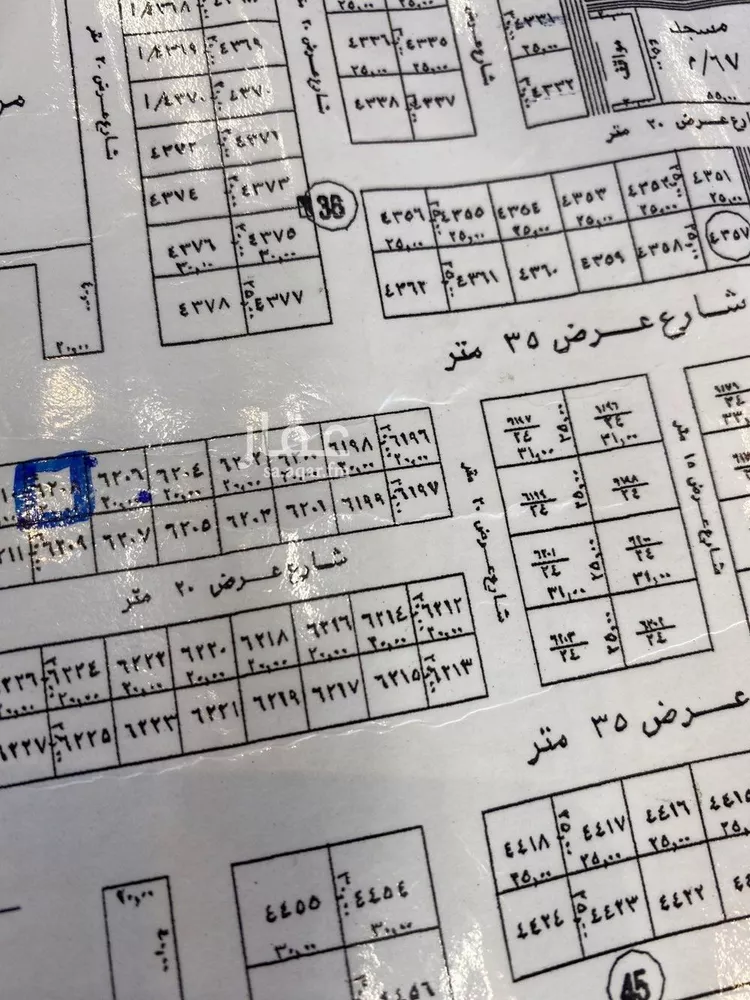 مسجد
٦٧/م
شارع عرض ٢٠ متر
شارع عرض ٢٠ متر
١/٤٣٦٨
١/٤٣٦٩ ٤٣٦٩
١/٤٣٧٠ ٤٣٧٠
٤٣٧٢ ٤٣٧١
٤٣٧٤ ٤٣٧٣
٤٣٧٦ ٤٣٧٥
٣٠,٠٠
٤٣٧٨ ٤٣٧٧
٢٥,٠٠ ٢٥,٠٠
٤٣٣٦ ٤٣٣٥
٢٥,٠٠ ٢٥,٠٠
٤٣٣٨ ٤٣٣٧
٢٥,٠٠
٤٣٣٢
٢٠ متر
36
٤٣٥٦ ٤٣٥٥ ٤٣٥٤ ٤٣٥٣ ٤٣٥٢ ٤٣٥١
٢٥,٠٠ ٢٥,٠٠ ٢٥,٠٠ ٢٥,٠٠ ٢٥,٠٠ ٢٥,٠٠
٤٣٦٢ ٤٣٦١ ٤٣٦٠ ٤٣٥٩ ٤٣٥٨ ٤٣٥٧
٤٠,٠٠
٢٠,٠٠
شارع عرض ٣٥ متر
عقار
sa.aqar.fm
٦٢٠٨ ٦٢٠٦ ٦٢٠٤ ٦٢٠٢ ٦١٩٨ ٦١٩٦
٢٠,٠٠ ٢٠,٠٠ ٢٠,٠٠ ٢٠,٠٠ ٢٠,٠٠
٦٢٠٩ ٦٢٠٧ ٦٢٠٥ ٦٢٠٣ ٦٢٠١ ٦١٩٩ ٦١٩٧
شارع عرض ٢٠ متر
شارع عرض ٢٠ متر
شارع عرض ١٥ متر
٦١٩٧/٢٤ ٦١٩٦/٢٤
٣١,٠٠ ٣١,٠٠
٦١٩٩/٢٤ ٦١٩٨/٢٤
٦٢٠١/٢٤ ٦٢٠٠/٢٤
٣١,٠٠ ٣١,٠٠
٦٢٠٣/٢٤ ٦٢٠٢/٢٤
٦٢٢٤ ٦٢٢٢ ٦٢٢٠ ٦٢١٨ ٦٢١٦ ٦٢١٤ ٦٢١٢
٢٠,٠٠ ٢٠,٠٠ ٢٠,٠٠ ٢٠,٠٠ ٢٠,٠٠ ٢٠,٠٠ ٢٠,٠٠
٦٢٢٧ ٦٢٢٥ ٦٢٢٣ ٦٢٢١ ٦٢١٩ ٦٢١٧ ٦٢١٥ ٦٢١٣
عرض ٣٥ متر
٤٤١٨ ٤٤١٧ ٤٤١٦ ٤٤١٥
٢٥,٠٠ ٢٥,٠٠ ٢٥,٠٠ ٢٥,٠٠
٤٤٢٤ ٤٤٢٣ ٤٤٢٢
45
٤٤٥٥ ٤٤٥٤
٣٠,٠٠ ٣٠,٠٠
٤٤٥٦
٢٠,٠٠
٤٠,٠٠